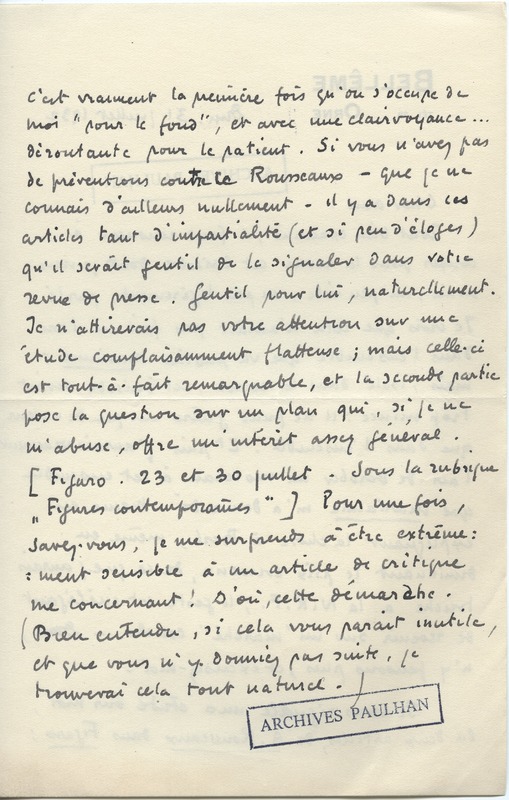 c'est vraiment la première fois qu'on s'occupe de
moi "pour le fond", et avec une clairvoyance...
déroutante pour le patient. Si vous n'avez pas
de préventions contre ce Rousseaux – que je ne
connais d'ailleurs nullement – il y a dans ces
articles tant d'impartialité (et si peu d'éloges)
qu'il serait gentil de le signaler dans votre
revue de presse. Gentil pour lui, naturellement.
Je n'attirerais pas votre attention sur une
étude complaisamment flatteuse ; mais celle-ci
est tout-à-fait remarquable, et la seconde partie
pose la question sur un plan qui, si je ne
m'abuse, offre un intérêt assez général.
[Figaro. 23 et 30 juillet. Sous la rubrique
"Figures contemporaines"] Pour une fois,
savez-vous, je me surprends à être extrême:
:ment sensible à un article de critique
me concernant ! D'où, cette démarche.
(Bien entendu, si cela vous parait inutile,
et que vous n'y donniez pas suite, je
trouverai cela tout naturel.
ARCHIVES PAULHAN
BELLÊME
ORNE